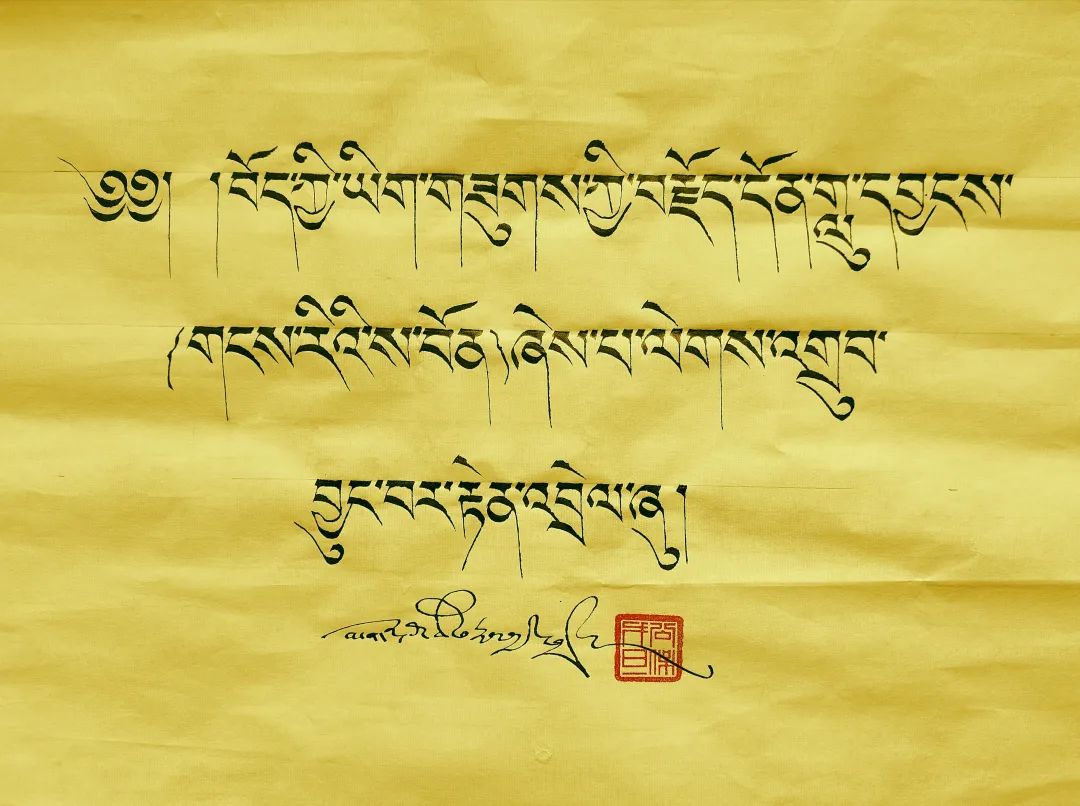 ༄༅། །བོད་ཀྱི་ཡིག་གཟུགས་ཀྱི་བརྗོད་དོན་གླུ་དབྱངས་
(གངས་རིའི་ས་བོན)ཞེས་པ་ལེགས་འགྲུབ་
བྱུང་བར་རྟེན་འབྲེལ་ཞུ།